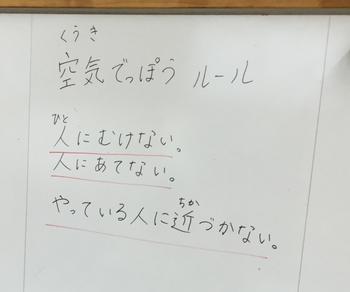 くうき
空気でっぽう ルール
ひと
人にむけない。
人にあてない。
ちか
やっている人に近づかない。